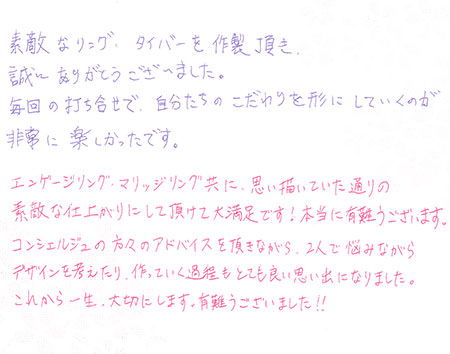 素敵なリング、タイバーを作製頂き、
誠にありがとうございました。
毎回の打ち合せで、自分たちのこだわりを形にしていくのが
非常に楽しかったです。
エンゲージリング・マリッジリング共に、思い描いていた通りの
素敵な仕上がりにして頂けて大満足です！本当に有難うございます。
コンシェルジュの方々のアドバイスを頂きながら、2人で悩みながら
デザインを考えたり、作っていく過程もとても良い思い出になりました。
これから一生、大切にします。有難うございました!!